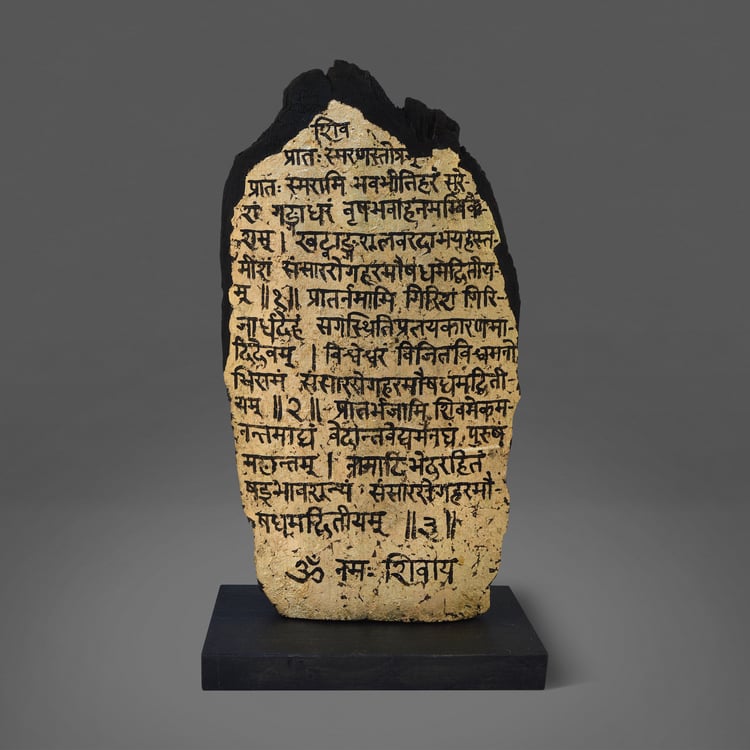 शिव
प्रातः स्मरणस्तोत्रम्
प्रातः स्मरामि भवभीतिहरं सुरे-
शं गङ्गाधरं वृषभवाहनमम्बिके
शम् । खट्वाङ्गशूलवरदाभयहस्त-
मीशं संसाररोगहरमौषधमद्वितीय-
म् ॥१॥ प्रातर्नमामि गिरिशं गिरि-
जार्धदेहं सर्गस्थितिप्रलयकारणमा-
दिदेवम् । विश्वेश्वरं विजितविश्वमनो
भिरामं संसाररोगहरमौषधमद्विती-
यम् ॥२॥ प्रातर्भजामि शिवमेकम-
नन्तमाद्यं वेदान्तवेद्यमनघं पुरुषं
महान्तम् । नामादिभेदरहितं
षड्भावशून्यं संसाररोगहरमौ-
षधमद्वितीयम् ॥३॥
ॐ नमः शिवाय